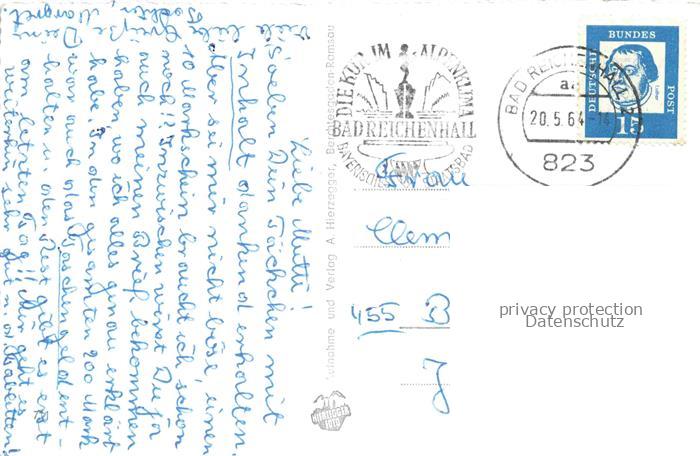 Liebe Mutti!
Soeben Dein Päckchen mit
Inhalt dankend erhalten.
Aber sei mir nicht böse, einen
10 Markschein brauche ich schon
noch!! Inzwischen wirst Du ja
auch meinen Brief bekommen
haben, wo ich alles genau erklärt
habe. In den gesamten 200 Mark
war auch das Taschengeld ent-
halten u. den Rest gibt es erst
am letzten Tag!! Mir geht es
weiterhin sehr gut
Viele
liebe
Grüße
Deine
Margret.
Aufnahme und Verlag A. Hierzegger, Berchtesgaden-Ramsau
DIE KUR IM ALPENKLIMA
BAD REICHENHALL
BAYERISCHES STAATSBAD
BAD REICHENHALL 2
aa
20.5.64-14
823
DEUTSCHE
BUNDES
POST
15
Frau
Clem
455 B
J
privacy protection
Datenschutz